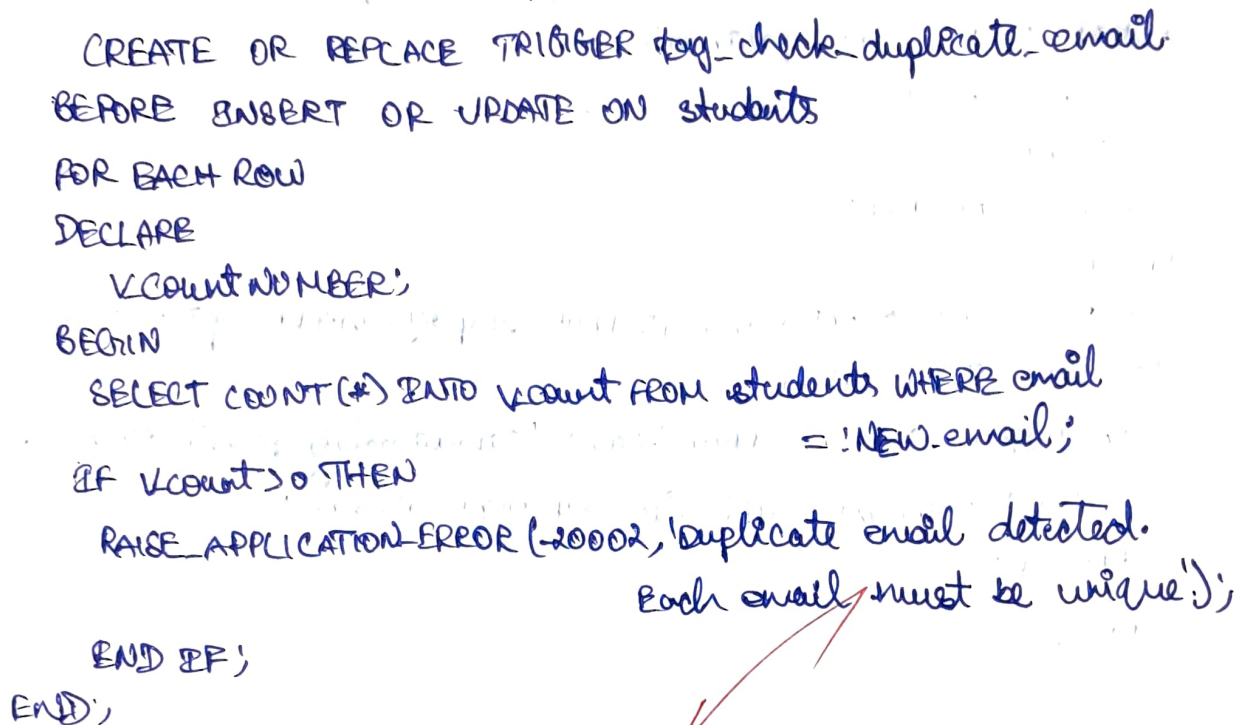 CREATE OR REPLACE TRIGGER trg_check_duplicate_email
BEFORE INSERT OR UPDATE ON students
FOR EACH ROW
DECLARE
v_count NUMBER;
BEGIN
SELECT COUNT(*) INTO v_count FROM students WHERE email
= :NEW.email;
IF v_count > 0 THEN
RAISE_APPLICATION_ERROR (-20002, 'Duplicate email detected.
Each email must be unique.');
END IF;
END;